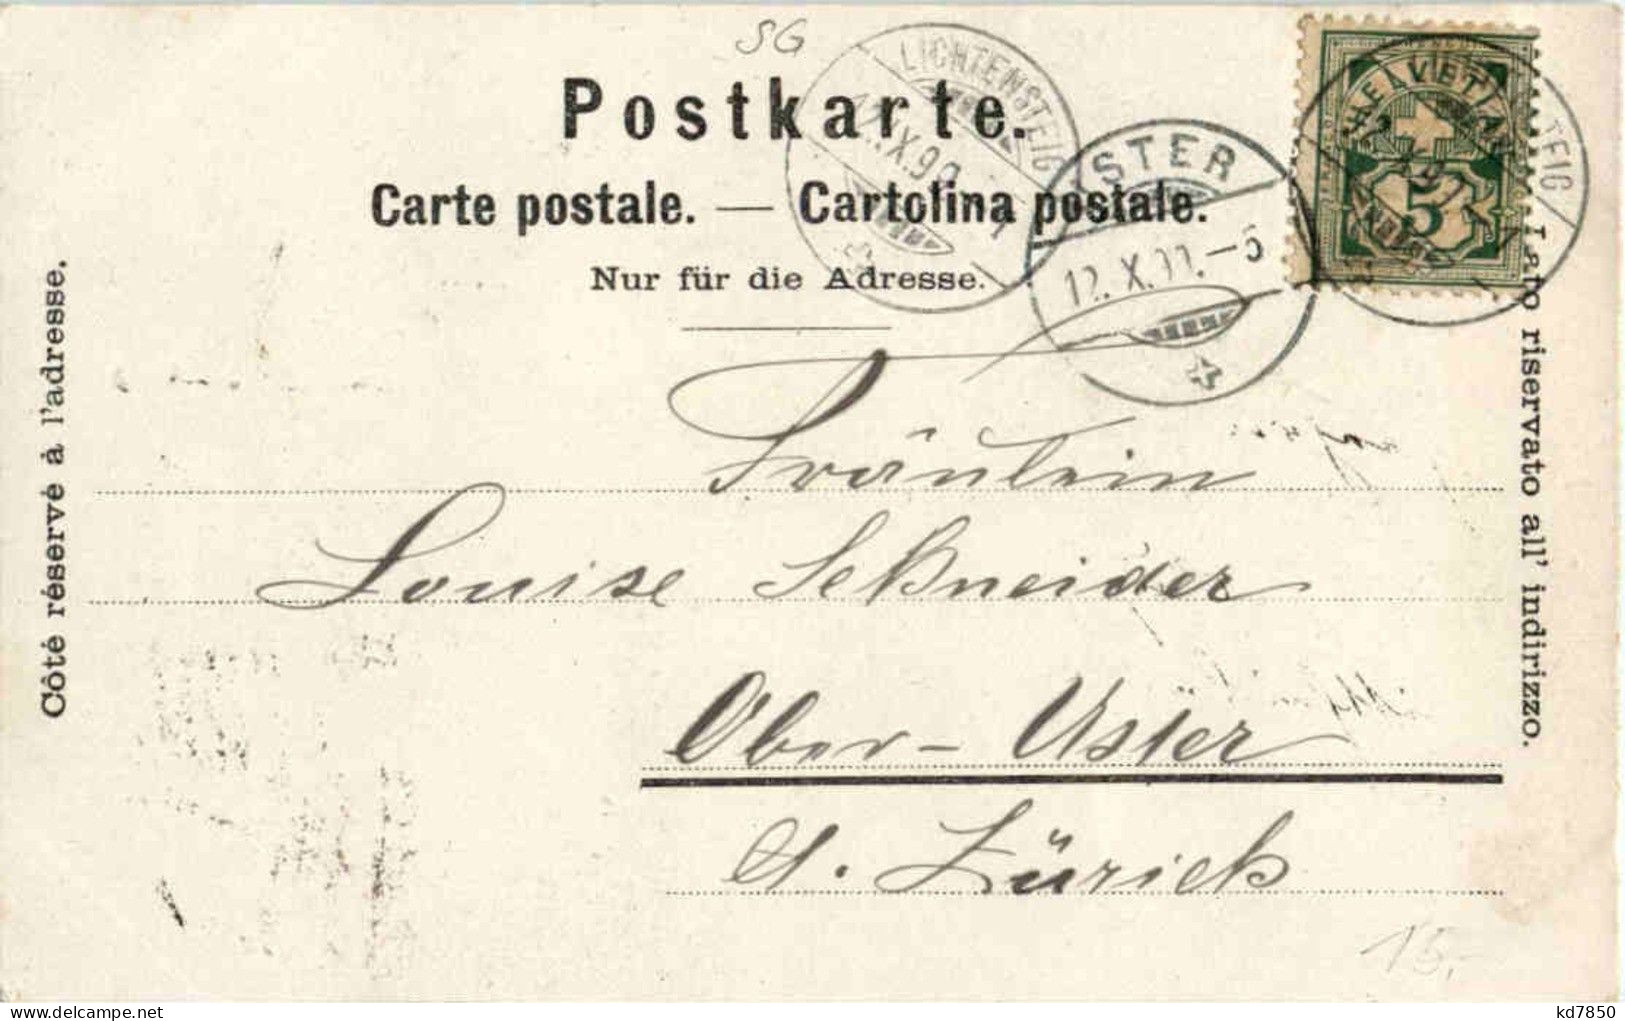 SG
Postkarte.
Carte postale. — Cartolina postale.
Nur für die Adresse.
LICHTENSTEIG
USTER
12.X.99.-5
HELVETIA
5
Côté réservé à l'adresse.
Lato riservato all' indirizzo.
Fräulein
Louise Schneider
Ober-Uster
Ct. Zürich
15.-
kd7850